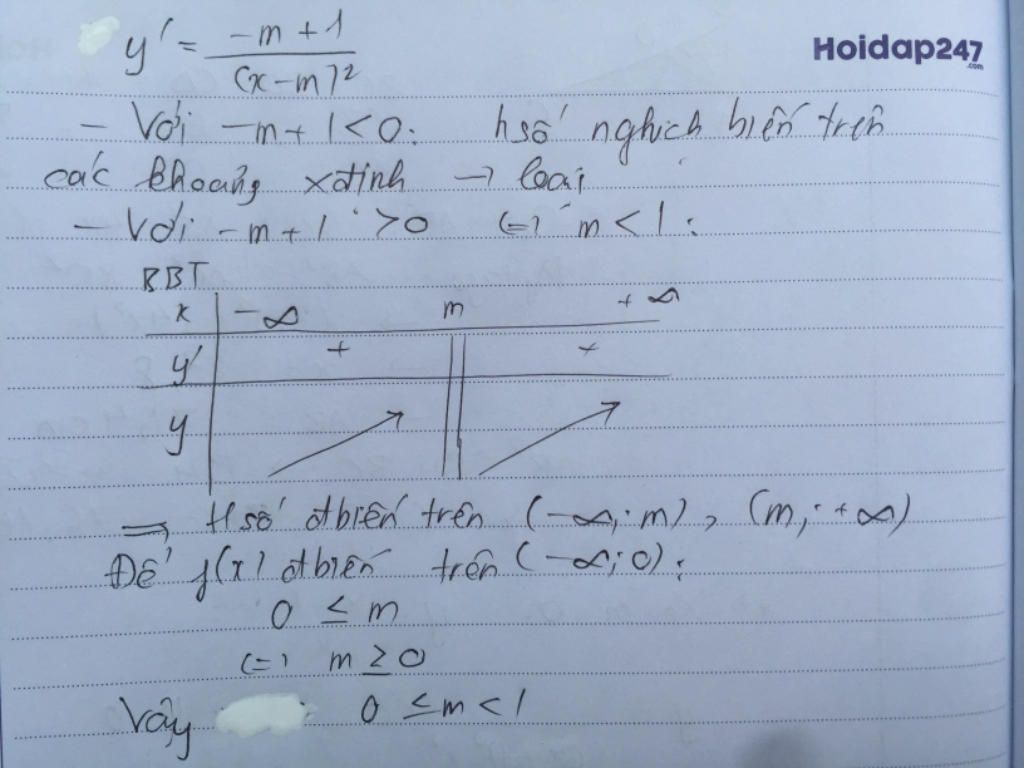 y' = \frac{-m + 1}{(x - m)^2}
Hoidap247
.com
- Với -m + 1 < 0: hsố nghịch biến trên
các khoảng xđịnh → loại
- Với -m + 1 > 0 (=) m < 1:
BBT
x -∞ m +∞
y' + +
y
=> Hsố đbiến trên (-∞; m), (m; +∞)
Để f(x) đbiến trên (-∞; 0):
0 ≤ m
(=) m ≥ 0
Vậy 0 ≤ m < 1